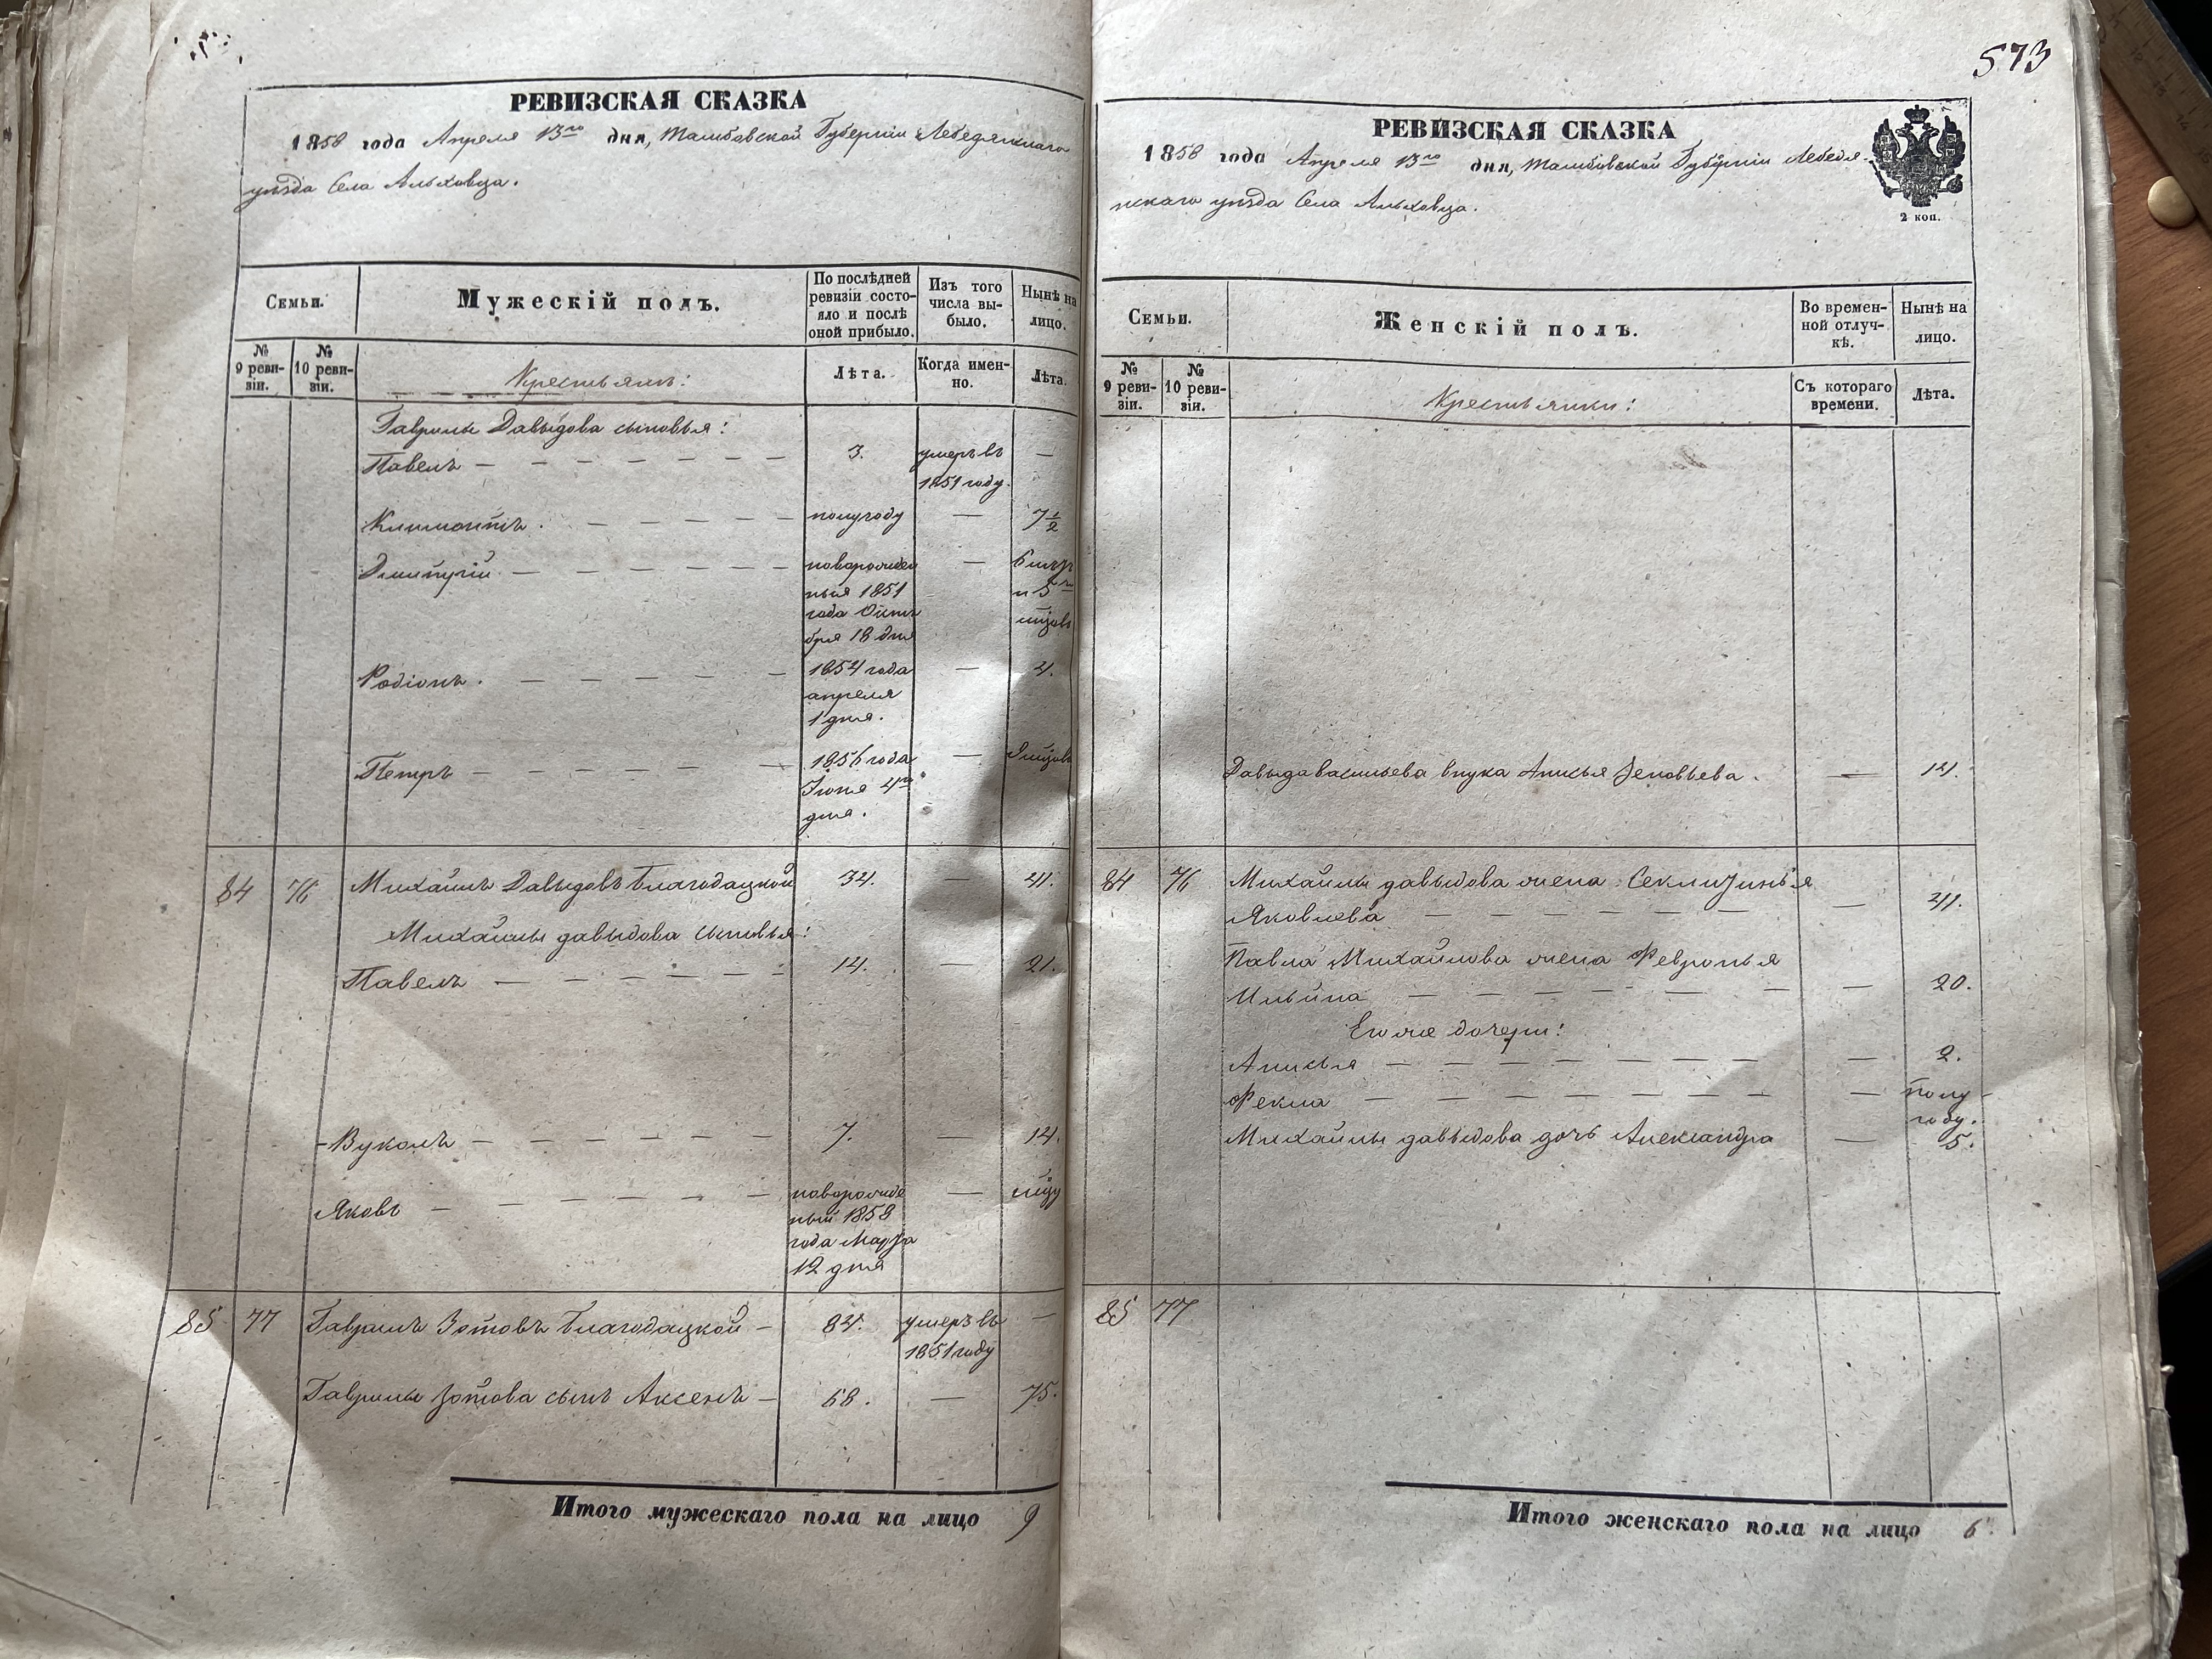 573
РЕВИЗСКАЯ СКАЗКА
1858 года Апреля 13го дня, Тамбовской Губернiи Лебедянскаго
уѣзда Села Альховца.
Семьи.
Мужескiй полъ.
По послѣдней
ревизiи состо-
яло и послѣ
оной прибыло.
Изъ того
числа вы-
было.
Нынѣ на
лицо.
№
9 реви-
зiи.
№
10 реви-
зiи.
Крестьяне:
Лѣта.
Когда имен-
но.
Лѣта.
Гаврилы Давыдова сыновья:
Павелъ — 3. умеръ въ —
1851 году.
Климонтъ. — полугоду — 7 1/2
Дмитрiй — новорожден — 6 лѣтъ
ный 1851 и 5
года Октя
бря 18 дня
Родiонъ. — 1854 года — 4.
апреля
1 дня.
Петръ — 1856 года —
Iюня 4го
дня.
84 76 Михайлъ Давыдовъ Благодацкой 34. — 41.
Михайлы давыдова сыновья:
Павелъ — 14. — 21.
Вуколъ — 7. — 14.
Яковъ — новорожде —
ный 1858
года Марта
12 дня
85 77 Гаврилъ Зотовъ Благодацкой — 84. умеръ въ —
1851 году
Гаврилы Зотова сынъ Аксенъ — 68. — 75.
Итого мужескаго пола на лицо 9
РЕВИЗСКАЯ СКАЗКА
1858 года Апреля 13го дня, Тамбовской Губернiи Лебедя-
нскаго уѣзда Села Альховца.
2 коп.
Семьи.
Женскiй полъ.
Во времен-
ной отлуч-
кѣ.
Нынѣ на
лицо.
№
9 реви-
зiи.
№
10 реви-
зiи.
Крестьянки:
Съ котораго
времени.
Лѣта.
Давыда васильева внука Анисья Зеновьева. — 14.
84 76 Михайлы давыдова жена Секлитинья
Яковлева — 41.
Павла Михайлова жена Февронья
Ильина — 20.
Его же дочери:
Анисья — 2.
Фекла — полу-
году.
Михайлы давыдова дочь Александра — 5.
85 77
Итого женскаго пола на лицо 6.